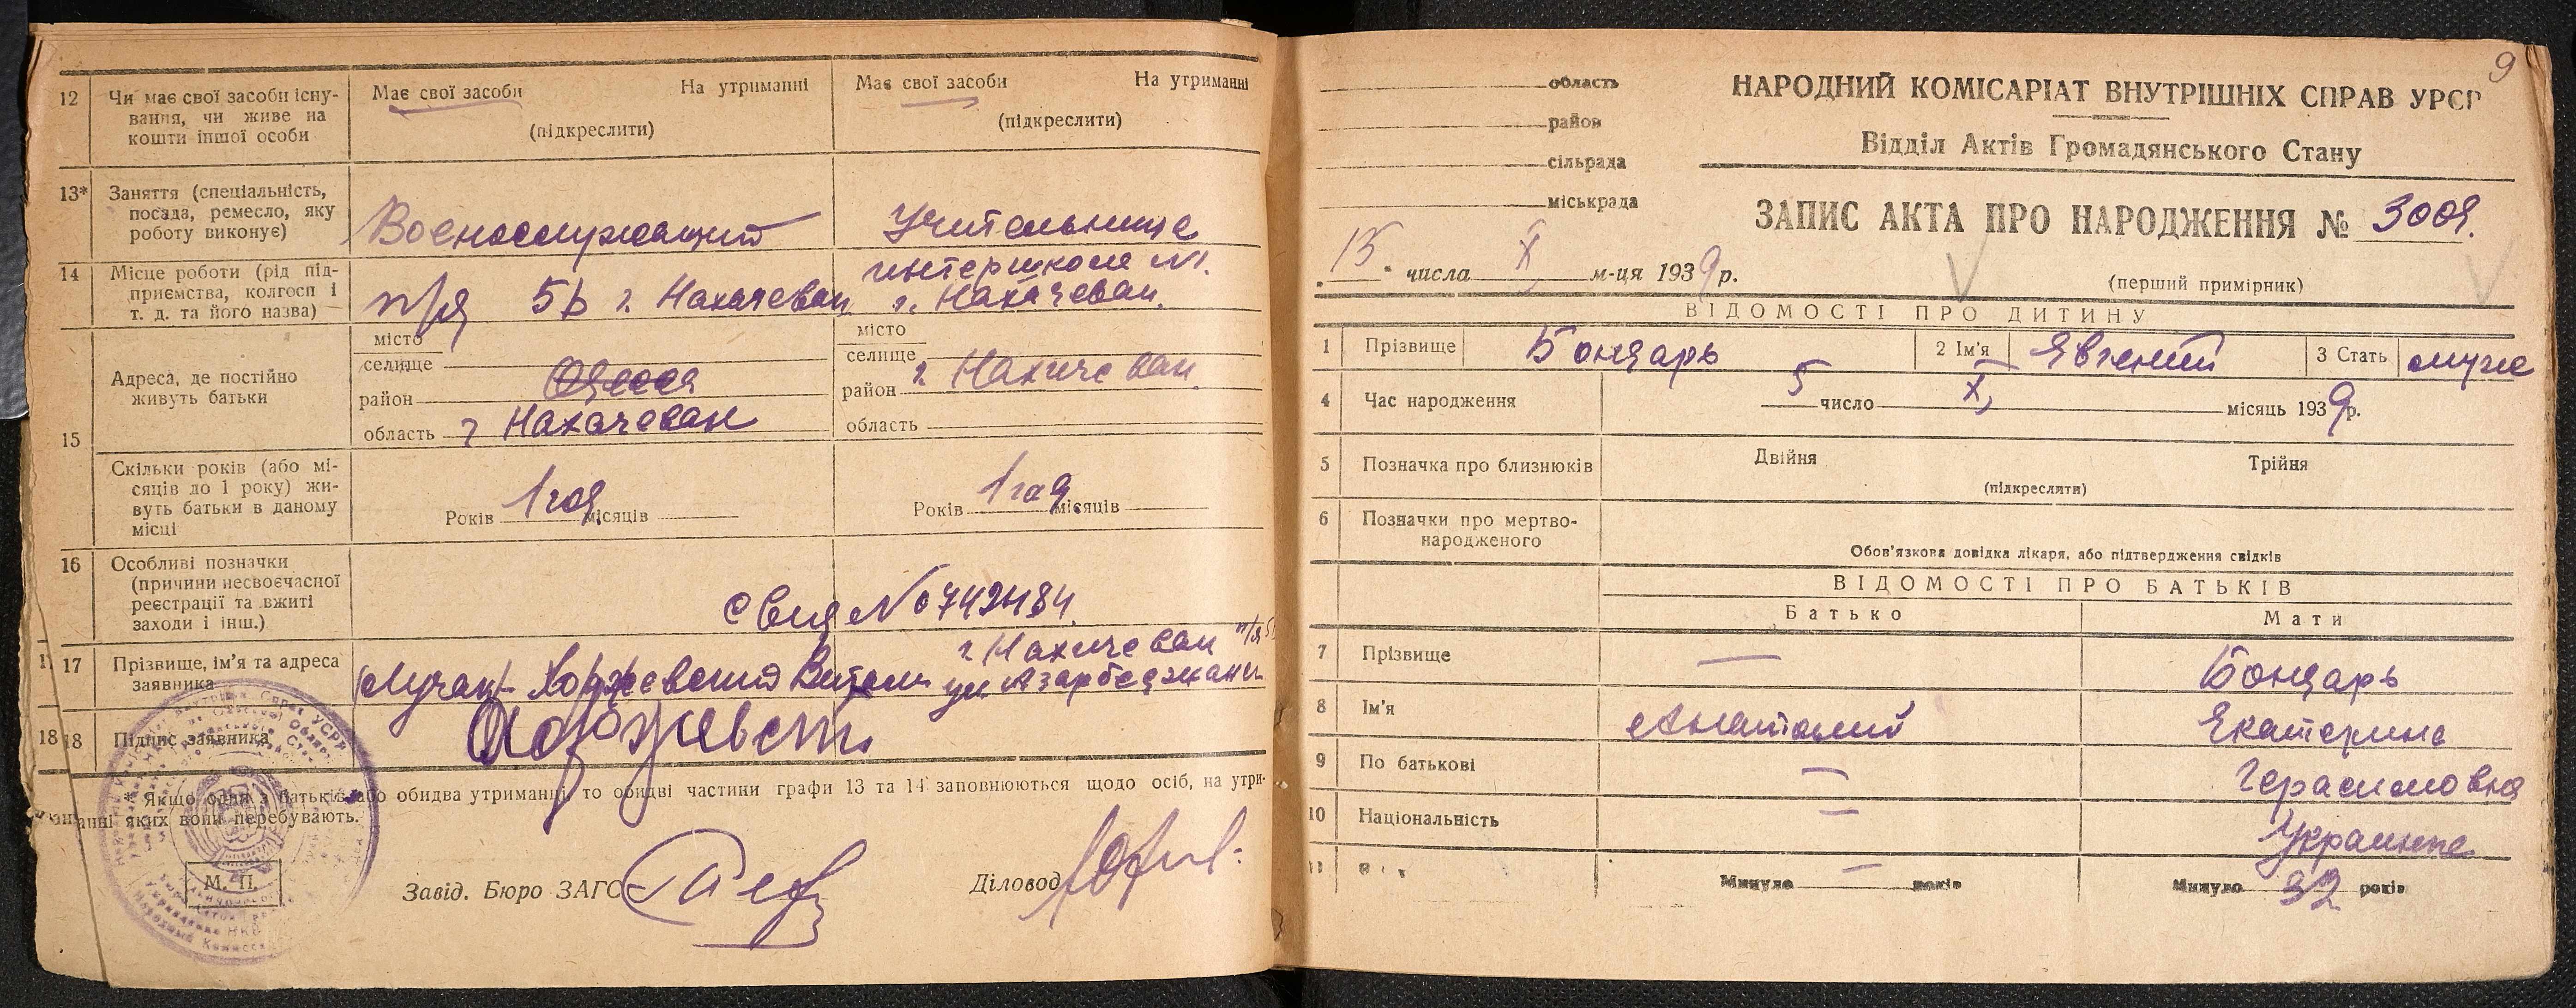 12 Чи має свої засоби існу-
вання, чи живе на
кошти іншої особи
Має свої засоби На утриманні
(підкреслити)
Має свої засоби На утриманні
(підкреслити)
13* Заняття (спеціальність,
посада, ремесло, яку
роботу виконує)
Военнослужащий
Учительница
14 Місце роботи (рід під-
приємства, колгосп і
т. д. та його назва)
п/я 5ь г. Нахачеван
г. Нахачеван.
15 Адреса, де постійно
живуть батьки
місто
селище
район Одесса
область г Нахачеван
місто
селище
район г Нахичеван
область
Скільки років (або мі-
сяців до 1 року) жи-
вуть батьки в даному
місці
Років 1 год місяців
Років 1 год місяців
16 Особливі позначки
(причини несвоєчасної
реєстрації та вжиті
заходи і інш.)
№ 0742484.
17 Прізвище, ім'я та адреса
заявника
г. Нахичеван п/я
18 18 Підпис заявника
* Якщо один з батьків або обидва утриманці, то обидві частини графи 13 та 14 заповнюються щодо осіб, на утри-
манні яких вони перебувають.
М. П.
Завід. Бюро ЗАГС
Діловод
9
область
район
сільрада
міськрада
НАРОДНИЙ КОМІСАРІАТ ВНУТРІШНІХ СПРАВ УРСР
Відділ Актів Громадянського Стану
ЗАПИС АКТА ПРО НАРОДЖЕННЯ № 3009.
15 числа X м-ця 1939 р.
(перший примірник)
ВІДОМОСТІ ПРО ДИТИНУ
1 Прізвище Бондарь 2 Ім'я Евгений 3 Стать муже
4 Час народження 5 число X, місяць 1939 р.
5 Позначка про близнюків Двійня Трійня
(підкреслити)
6 Позначки про мертво-
народженого
Обов'язкова довідка лікаря, або підтвердження свідків
ВІДОМОСТІ ПРО БАТЬКІВ
Батько Мати
7 Прізвище — Бондарь
8 Ім'я Анатолий Екатерина
9 По батькові — Герасимовна
10 Національність — Украинка
11 Минуло — років Минуло 32 років